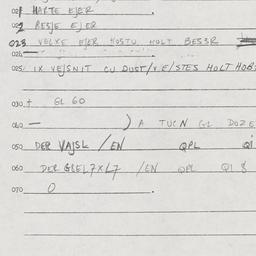 021 HARTE EJER
022 RESJE EJER
023 VELKE EJER HOSTU HOLT BES3R
024
025 IX VEJSNIT CU DUST/VE/STES HOLT HOB
030 + GL 60
040 —
) A TUCN GL DOZE
050 DER VAJSL /EN QPL QI
060 DER GLEL7XL7 /EN QPL QI 8
070 0